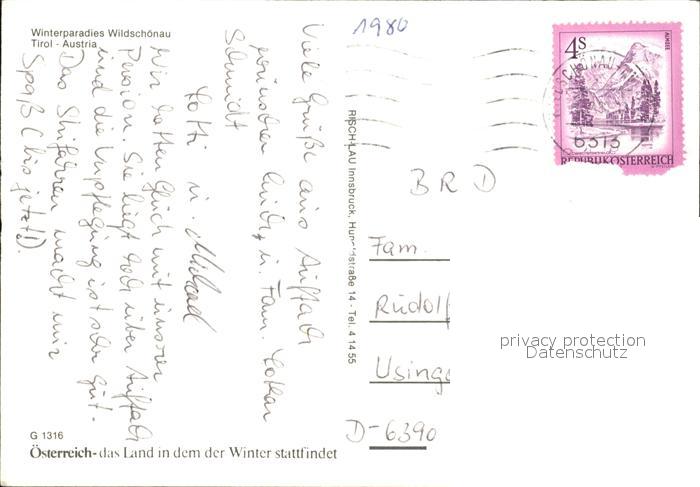 Winterparadies Wildschönau
Tirol - Austria
1980
Viele Grüße aus Auffach
wünschen Euch, u. Fam. Lothar
Schmidt
Lotti u. Michael
Wir hatten Glück mit unserer
Pension. Sie liegt hoch über Auffach
und die Verpflegung ist sehr gut.
Das Skifahren macht mir
Spaß (bis jetzt!).
G 1316
Österreich-das Land in dem der Winter stattfindet
RISCH-LAU Innsbruck, Hunoldstraße 14 - Tel. 4 14 55
4S
ALMSEE
REPUBLIK ÖSTERREICH
6313
BRD
Fam.
Rudolf
Using
D-6390
privacy protection
Datenschutz